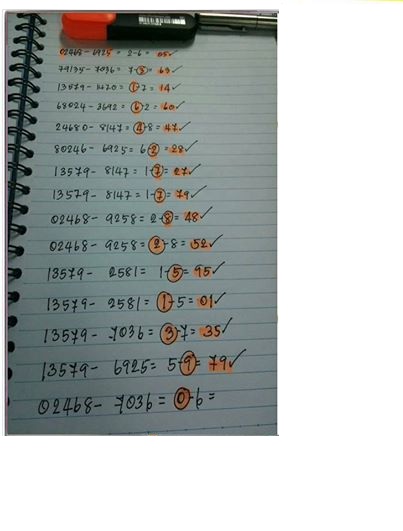 02468 - 6925 = 2-6 = 05✓
79135 - 7036 = 7-3 = 63✓
13579 - 1470 = 1-7 = 14✓
68024 - 3692 = 6-2 = 60✓
24680 - 8147 = 4-8 = 47✓
80246 - 6925 = 6-2 = 28✓
13579 - 8147 = 1-7 = 27✓
13579 - 8147 = 1-7 = 79✓
02468 - 9258 = 2-8 = 48✓
02468 - 9258 = 2-8 = 52✓
13579 - 2581 = 1-5 = 95✓
13579 - 2581 = 1-5 = 01✓
13579 - 7036 = 3-7 = 35✓
13579 - 6925 = 5-9 = 79✓
02468 - 7036 = 0-6 =